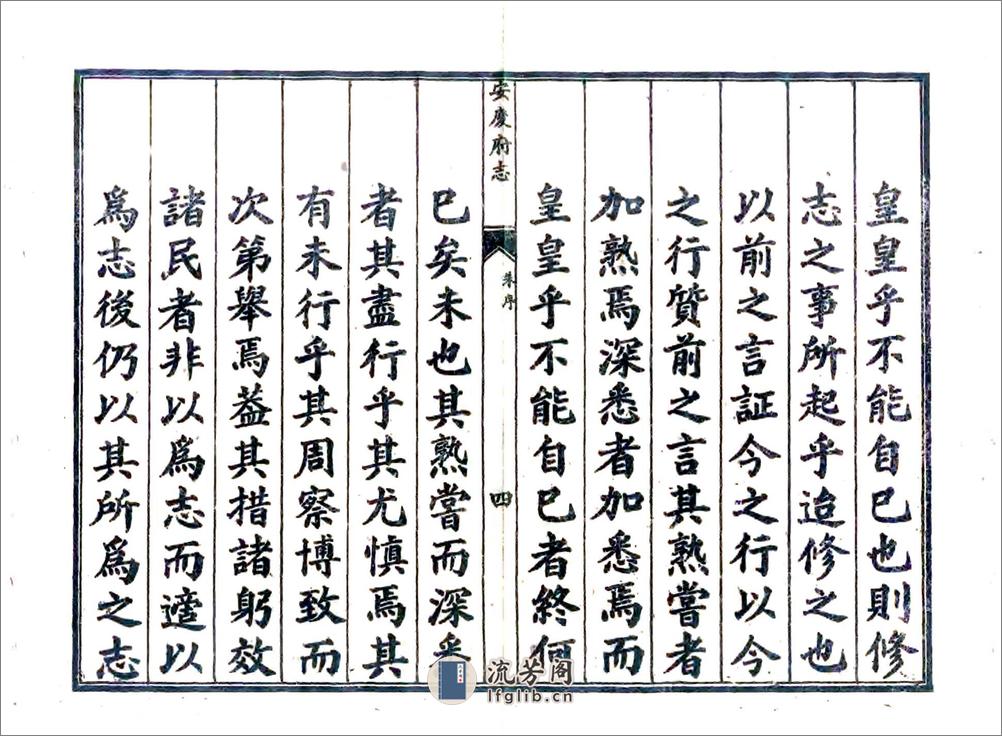 皇皇乎不能自已也則修
志之事所起乎迨修之也
以前之言証今之行以今
之行質前之言其熟嘗者
加熟焉深悉者加悉焉而
皇皇乎不能自已者終何
安慶府志
朱序
四
已矣未也其熟嘗而深悉
者其盡行乎其尤慎焉其
有未行乎其周察博致而
次第舉焉葢其措諸躬效
諸民者非以爲志而適以
爲志後仍以其所爲之志
流芳阁
lfglib.cn